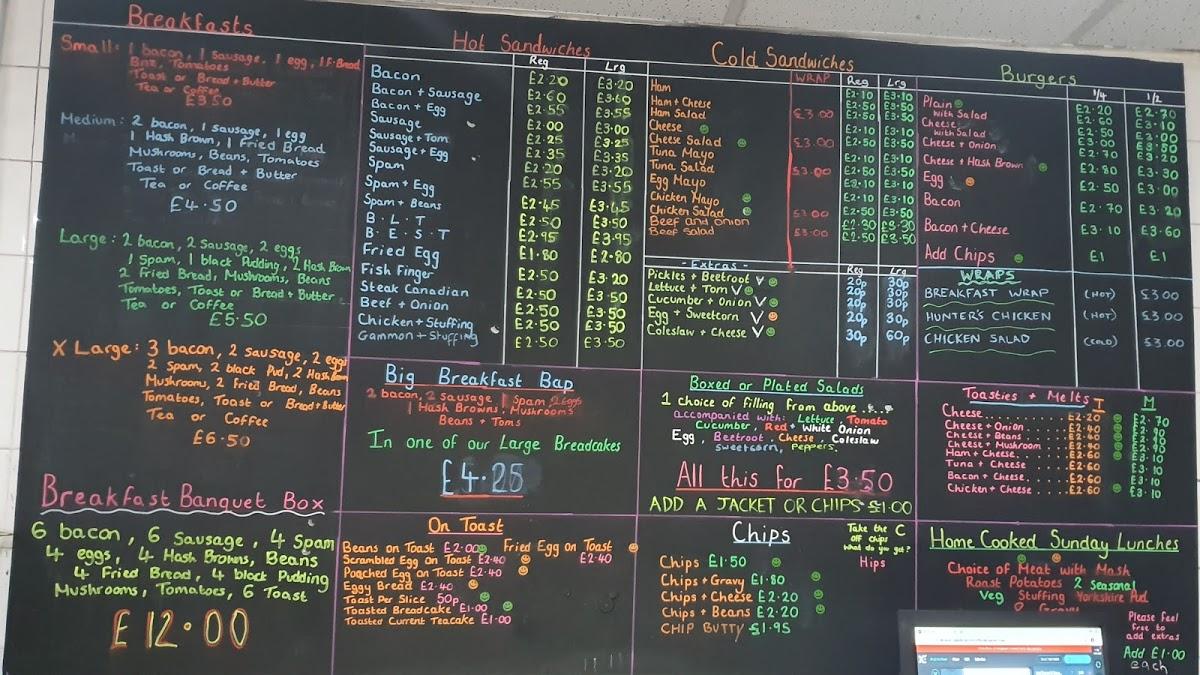 Breakfasts
Small: 1 bacon, 1 sausage, 1 egg, 1 F. Bread
Bns, Tomatoes
Toast or Bread + Butter
Tea or Coffee
£3.50
Medium: 2 bacon, 1 sausage, 1 egg
1 Hash Brown, 1 Fried Bread
Mushrooms, Beans, Tomatoes
Toast or Bread + Butter
Tea or Coffee
£4.50
Large: 2 bacon, 2 sausage, 2 eggs
1 spam, 1 black Pudding, 2 Hash Brown
2 Fried Bread, Mushrooms, Beans
Tomatoes, Toast or Bread + Butter
Tea or Coffee
£5.50
X Large: 3 bacon, 2 sausage, 2 eggs
2 Spam, 2 black Pud, 2 Hash
Mushrooms, 2 Fried Bread, Beans
Tomatoes, Toast or Bread + Butter
Tea or Coffee
£6.50
Breakfast Banquet Box
6 bacon, 6 Sausage, 4 Spam
4 eggs, 4 Hash Browns, Beans
4 Fried Bread, 4 black Pudding
Mushrooms, Tomatoes, 6 Toast
£12.00
Hot Sandwiches
Reg Lrg
Bacon £2.20 £3.20
Bacon + Sausage £2.60 £3.60
Bacon + Egg £2.55 £3.55
Sausage £2.00 £3.00
Sausage + Tom £2.25 £3.25
Sausage + Egg £2.35 £3.35
Spam £2.20 £3.20
Spam + Egg £2.55 £3.55
Spam + Beans £2.45 £3.45
B.L.T £2.50 £3.50
B.E.S.T £2.95 £3.95
Fried Egg £1.80 £2.80
Fish Finger £2.50 £3.20
Steak Canadian £2.50 £3.50
Beef + Onion £2.50 £3.50
Chicken + Stuffing £2.50 £3.50
Gammon + Stuffing £2.50 £3.50
Big Breakfast Bap
2 bacon, 2 sausage 1 Spam 2 eggs
1 Hash Browns, Mushrooms
Beans + Toms
In one of our Large Breadcakes
£4.25
On Toast
Beans on Toast £2.00 Fried Egg on Toast
Scrambled Egg On Toast £2.40 £2.40
Poached Egg on Toast £2.40
Eggy Bread £2.40
Toast Per Slice 50p
Toasted Breadcake £1.00
Toasted Current Teacake £1.00
Cold Sandwiches
WRAP Reg Lrg
Ham £2.10 £3.10
Ham + Cheese £2.50 £3.50
Ham Salad £3.00 £2.50 £3.50
Cheese £2.10 £3.10
Cheese Salad £3.00 £2.50 £3.50
Tuna Mayo £2.10 £3.10
Tuna Salad £3.00 £2.50 £3.50
Egg Mayo £2.10 £3.10
Chicken Mayo £2.10 £3.10
Chicken Salad £3.00 £2.50 £3.50
Beef and Onion £2.30 £3.30
Beef Salad £3.00 £2.50 £3.50
- Extras - Reg Lrg
Pickles + Beetroot V 20p 30p
Lettuce + Tom V 20p 30p
Cucumber + Onion V 20p 30p
Egg + Sweetcorn V 20p 30p
Coleslaw + Cheese V 30p 60p
Boxed or Plated Salads
1 choice of filling from above ....
accompanied with: Lettuce, Tomato
Cucumber, Red + White Onion
Egg, Beetroot, Cheese, Coleslaw
Sweetcorn, Peppers.
All this for £3.50
ADD A JACKET OR CHIPS £1.00
Chips
Take the C
off chips
what do you get?
Hips
Chips £1.50
Chips + Gravy £1.80
Chips + Cheese £2.20
Chips + Beans £2.20
CHIP BUTTY £1.95
Burgers
1/4 1/2
Plain £2.20 £2.70
with Salad £2.60 £3.10
Cheese £2.50 £3.00
with Salad £3.00 £3.50
Cheese + Onion £2.70 £3.20
Cheese + Hash Brown £2.80 £3.30
Egg £2.50 £3.00
Bacon £2.70 £3.20
Bacon + Cheese £3.10 £3.60
Add Chips £1 £1
WRAPS
BREAKFAST WRAP (HOT) £3.00
HUNTER'S CHICKEN (HOT) £3.00
CHICKEN SALAD (COLD) £3.00
Toasties + Melts T M
Cheese £2.20 £2.70
Cheese + Onion £2.40 £2.90
Cheese + Beans £2.40 £2.90
Cheese + Mushroom £2.40 £2.90
Ham + Cheese £2.60 £3.10
Tuna + Cheese £2.60 £3.10
Bacon + Cheese £2.60 £3.10
Chicken + Cheese £2.60 £3.10
Home Cooked Sunday Lunches
Choice of Meat with Mash
Roast Potatoes 2 Seasonal
Veg Stuffing Yorkshire Pud
Gravy
Please feel
free to
add extras
Add £1.00
each